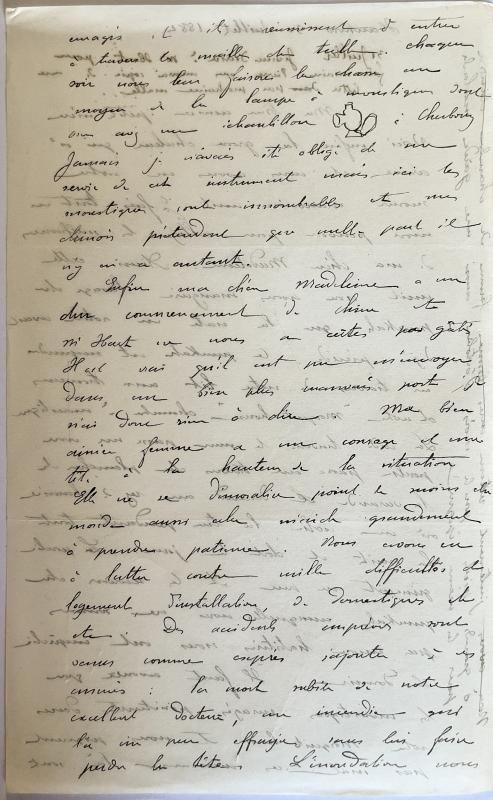 enragés, s'ils réussissent d'entrer
à travers les mailles du tulle. chaque
soir nous leur faisons la chasse au
moyen de la lampe à moustiques dont
on a un échantillon à Cherbourg
Jamais je n'avais été obligé de me
servir de cet instrument mais ici les
moustiques sont innombrables et nos
chinois prétendent que nulle part il
n'y en a autant.
Enfin ma chère Madeleine a un
dur commencement de Chine et
Mr Hart ne nous a certes pas gâtés
Il est vrai qu'il eut pu m'envoyer
dans un bien plus mauvais port, je
n'ai donc rien à dire. Ma bien
aimée femme a un courage et une
tête à la hauteur de la situation
Elle ne se démoralise point le moins du
monde aussi cela m'aide grandement
à prendre patience. Nous avons eu
à lutter contre mille difficultés de
logement d'installation, de domestiques etc
etc. Des accidents imprévus sont
venus comme exprès s'ajouter à ces
ennuis : la mort subite de notre
excellent docteur, un incendie qui
l'a un peu effrayée sans lui faire
perdre la tête. L'inondation nous